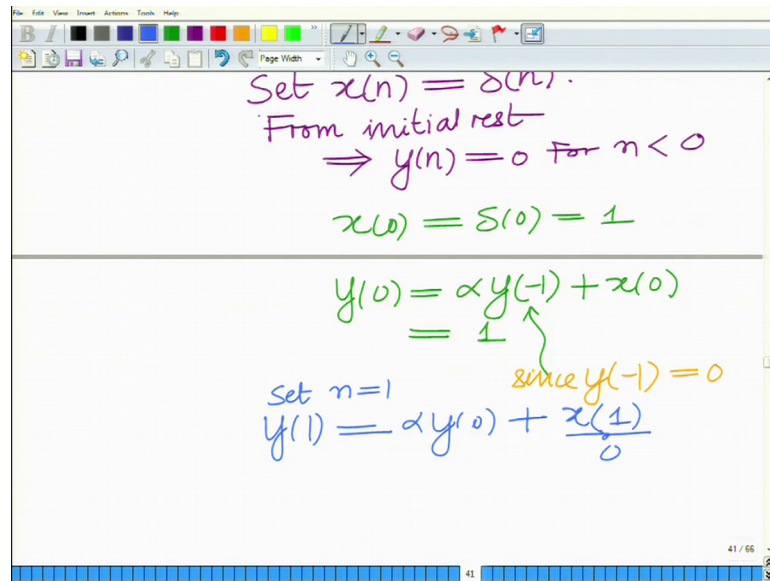 File Edit View Insert Actions Tools Help
B I
Page Width
Set x(n) = δ(n).
From initial rest
⇒ y(n) = 0 for n < 0
x(0) = δ(0) = 1
y(0) = αy(-1) + x(0)
= 1
since y(-1) = 0
Set n=1
y(1) = αy(0) + x(1)
0
41 / 66
41